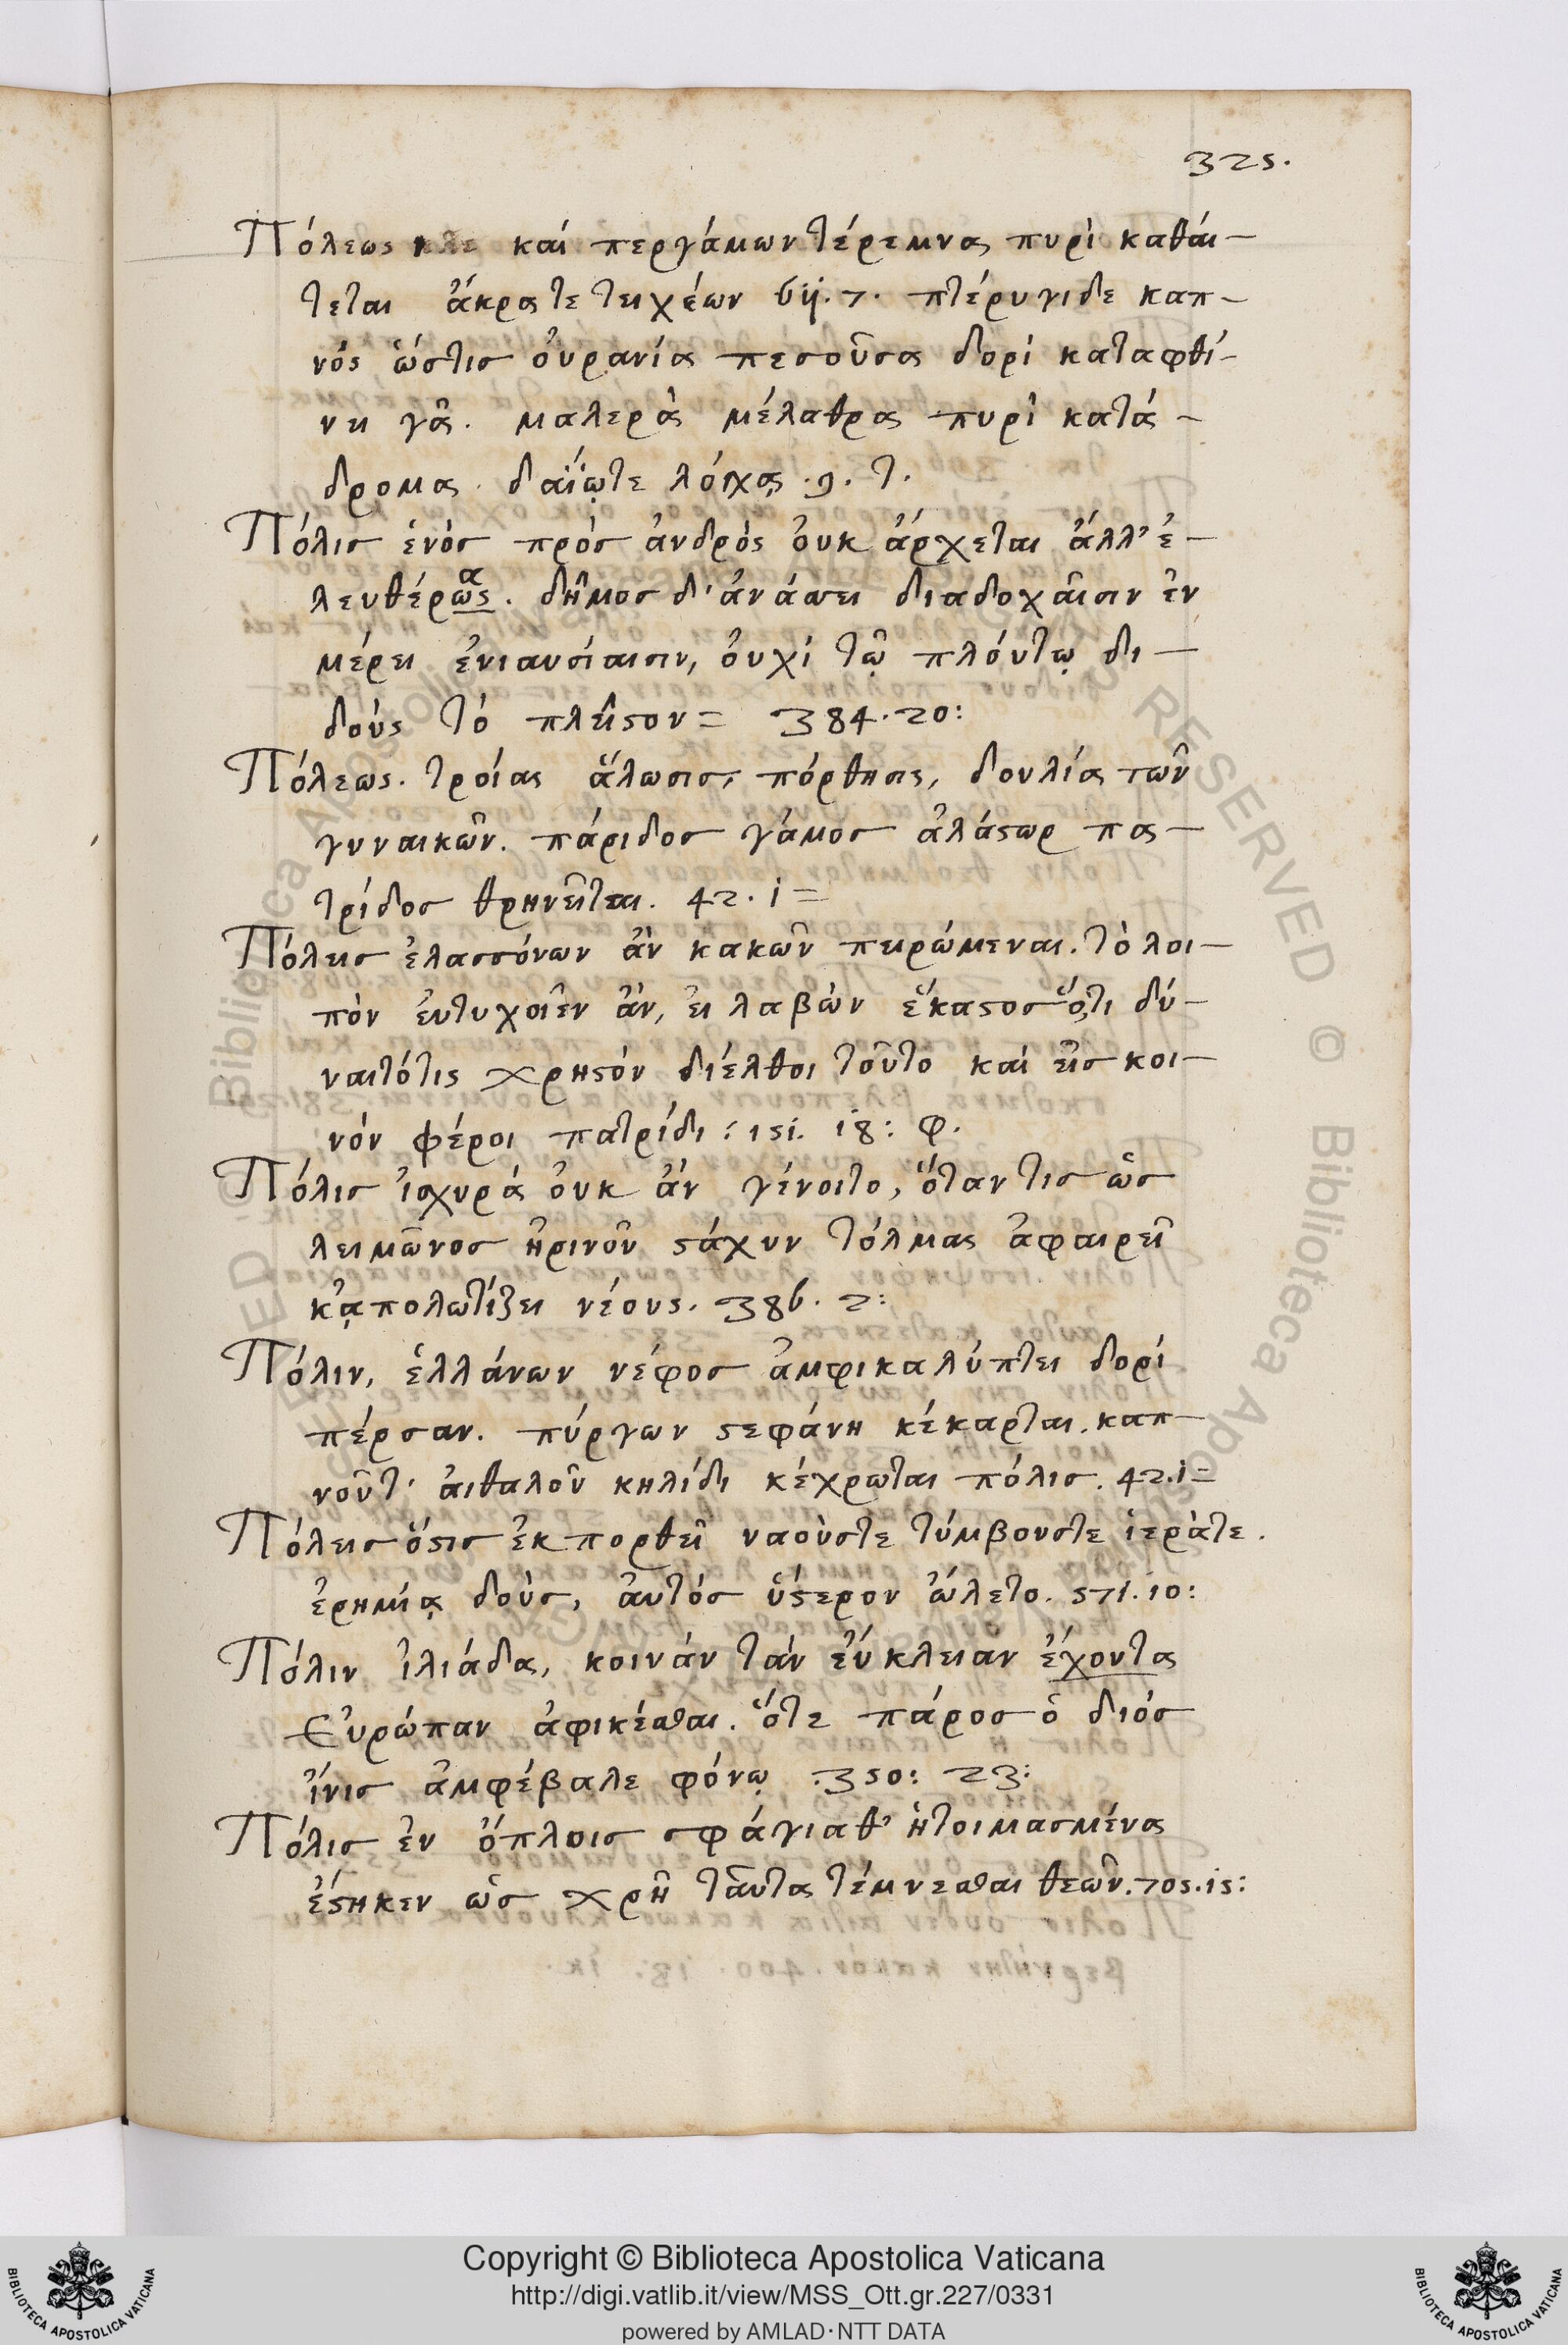 325.
Πόλεως καὶ περγάμων τέρεμνα πυρὶ καθαί-
τεται ἄκρα τε τειχέων 6ij.7. πτέρυγι δε καπ-
νός ὥστις οὐρανία πεσοῦσα δορί καταφθί-
νει γᾶ. μαλερὰ μέλαθρα πυρὶ κατά-
δρομα. δαΐῳτε λόγχᾳ .9.τ.
Πόλις ἑνὸς πρὸς ἀνδρὸς οὐκ ἄρχεται ἄλλ' ἐ-
λευθέρωςα. δῆμος δ' ἀνάσσει διαδοχαῖσιν ἐν
μέρει ἐνιαυσίαισιν, οὐχί τῷ πλούτῳ δι-
δούς τὸ πλεῖστον = 384.20:
Πόλεως. τροίας ἅλωσις, πόρθησις, δουλία τῶν
γυναικῶν. πάριδος γάμος ἀλάστωρ πα-
τρίδος θρηνεῖται. 42.i=
Πόλεις ἐλασσόνων ἂν κακῶν πειρώμεναι. τὸ λοι-
πὸν εὐτυχοῖεν ἄν, εἰ λαβὼν ἕκαστος ὅ,τι δύ-
ναιτότις χρηστόν διέλθοι τοῦτο καί εἰς κοι-
νόν φέροι πατρίδι: 151. 18: φ.
Πόλις ἰσχυρά οὐκ ἄν γένοιτο, ὅταν τις ὡς
λειμῶνος ἠρινοῦ στάχυν τόλμας ἀφαιρεῖ
κἀπολωτίζει νέους. 386. 2:
Πόλιν, ἑλλάνων νέφος ἀμφικαλύπτει δορί
πέρσαν. πύργων στεφάνη κέκαρται. καπ-
νοῦτ' αἰθαλοῦ κηλίδι κέχρωται πόλις. 42.i=
Πόλεις ὅστις ἐκπορθεῖ ναοὺστε τύμβουστε ἱεράτε.
ἐρημίᾳ δοὺς, αὐτός ὕστερον ὤλετο. 571.10:
Πόλιν ἰλιάδα, κοινάν τάν εὔκλειαν ἔχοντα
Εὐρώπαν ἀφικέσθαι. ὅτε πάρος ὁ διός
ἴνις ἀμφέβαλε φόνῳ .350: 23:
Πόλις ἐν ὅπλοις σφάγιαθ' ἡτοιμασμένα
ἕστηκεν ὡς χρῆ ταῦτα τέμνεσθαι θεῶν. 705.15:
Copyright © Biblioteca Apostolica Vaticana
http://digi.vatlib.it/view/MSS_Ott.gr.227/0331
powered by AMLAD·NTT DATA